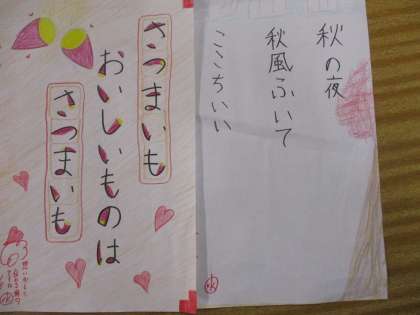 秋の夜
秋風ふいて
ここちいい
さつまいも
おいしいものは
さつまいも